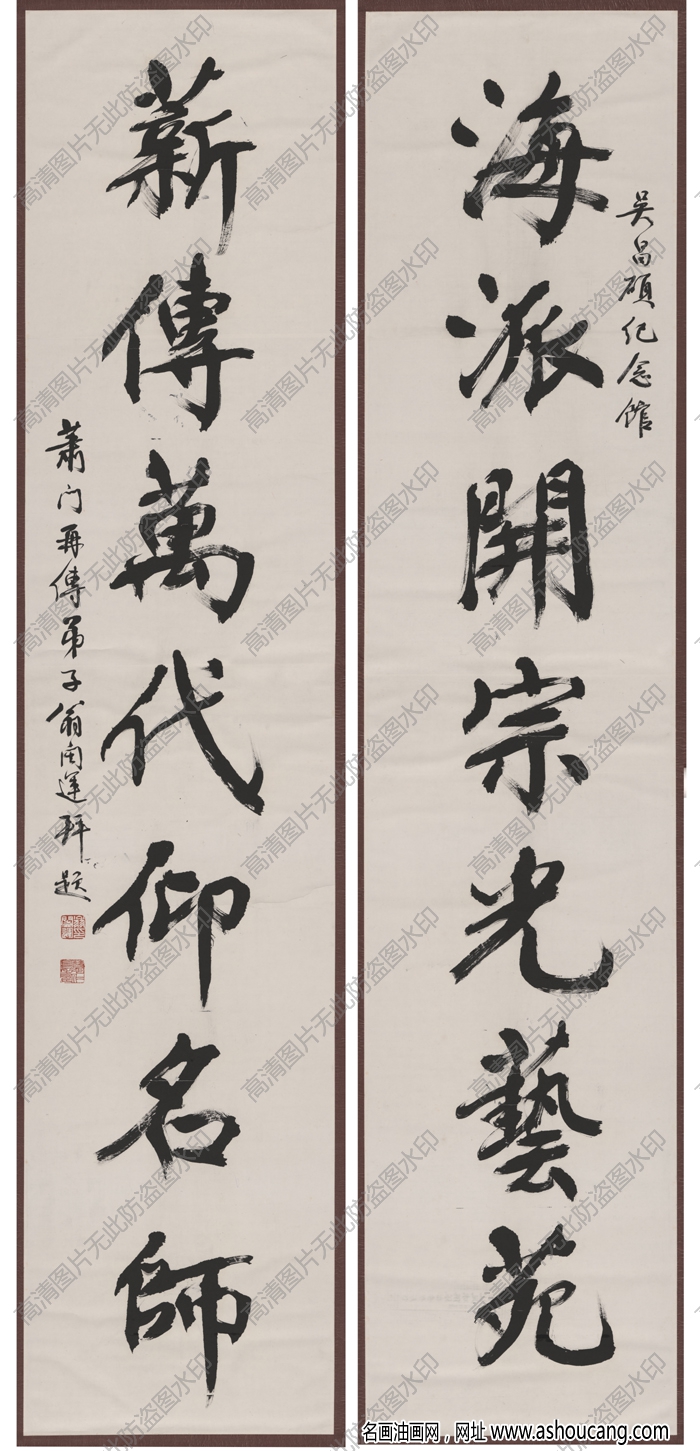 吴昌硕纪念馆
海派開宗光藝苑
薪傳萬代仰名師
萧门再傳弟子翁闿運拜题
高清图片无此防盗图水印
名画油画网，网址 www.ashoucang.com